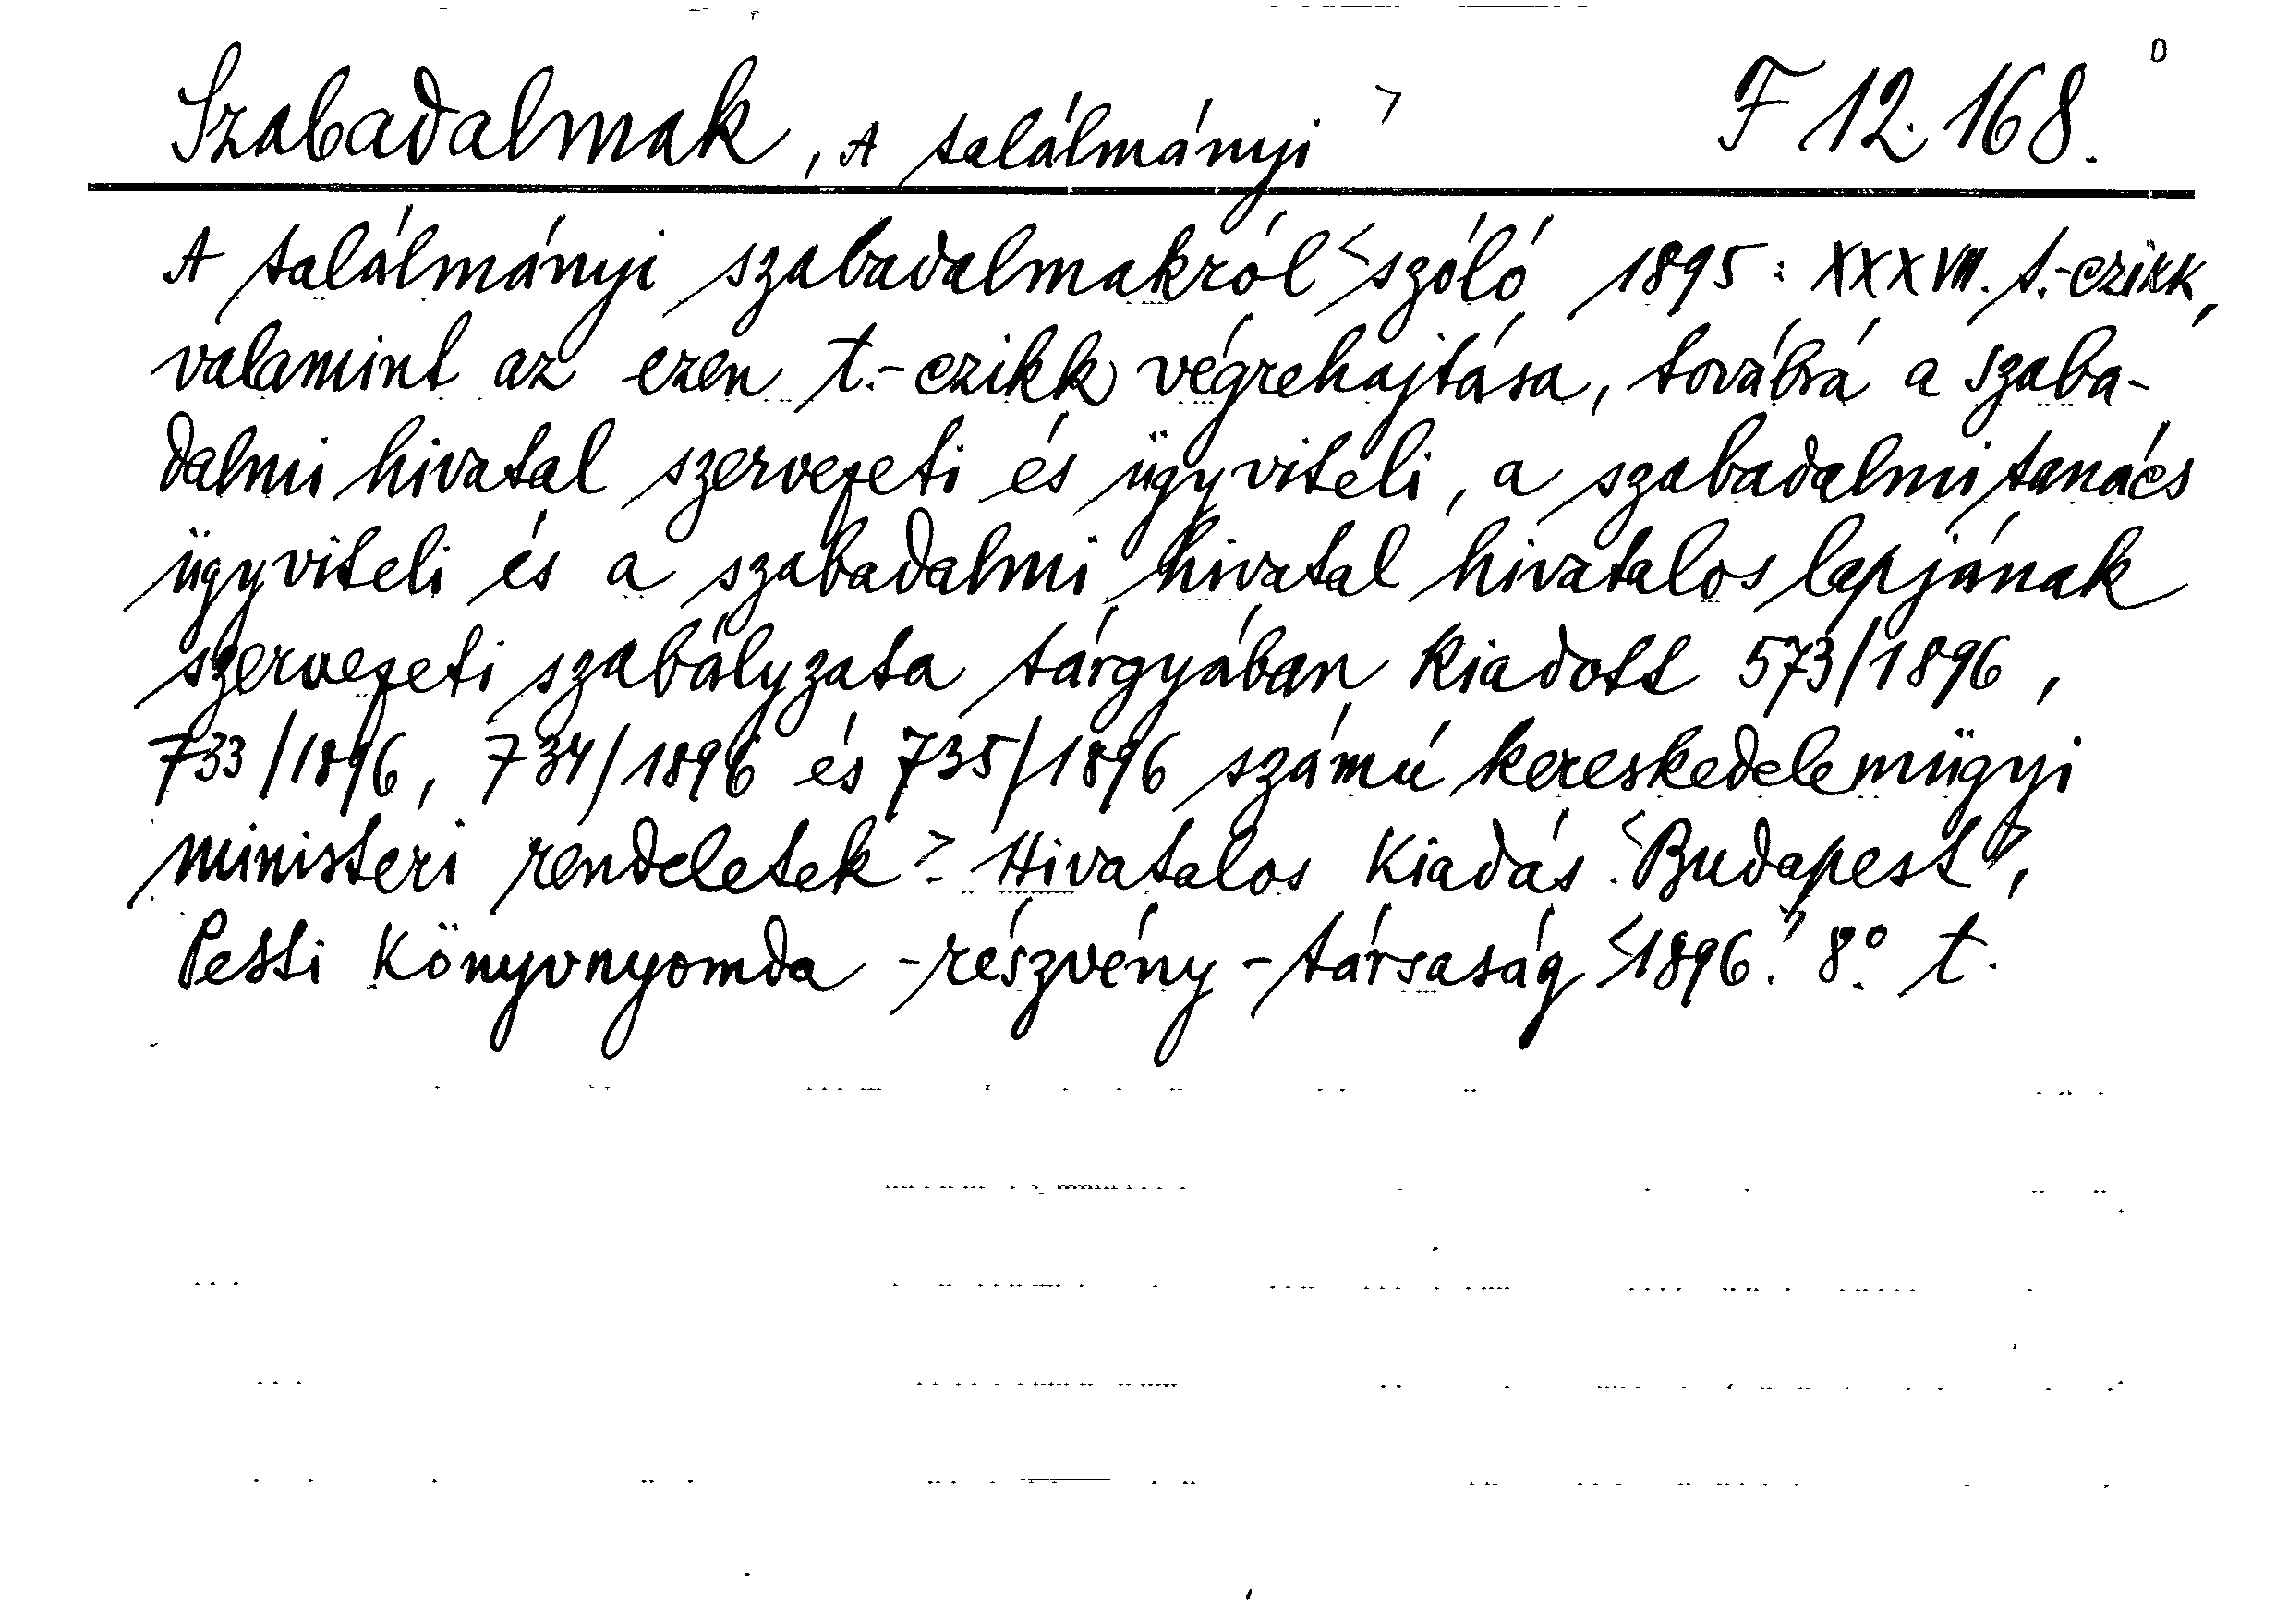 Szabadalmak, A találmányi > F 12.168.
A találmányi szabadalmakról <szóló 1895: XXXVII. t.-czikk,
valamint az ezen t.-czikk végrehajtása, továbbá a szaba-
dalmi hivatal szervezeti és ügyviteli, a szabadalmi tanács
ügyviteli és a szabadalmi hivatal hivatalos lapjának
szervezeti szabályzata tárgyában kiadott 573/1896,
733/1896, 734/1896 és 735/1896 számú kereskedelemügyi
ministeri rendeletek>. Hivatalos kiadás. <Budapest>,
Pesti Könyvnyomda-részvény-társaság <1896.> 8.° t.